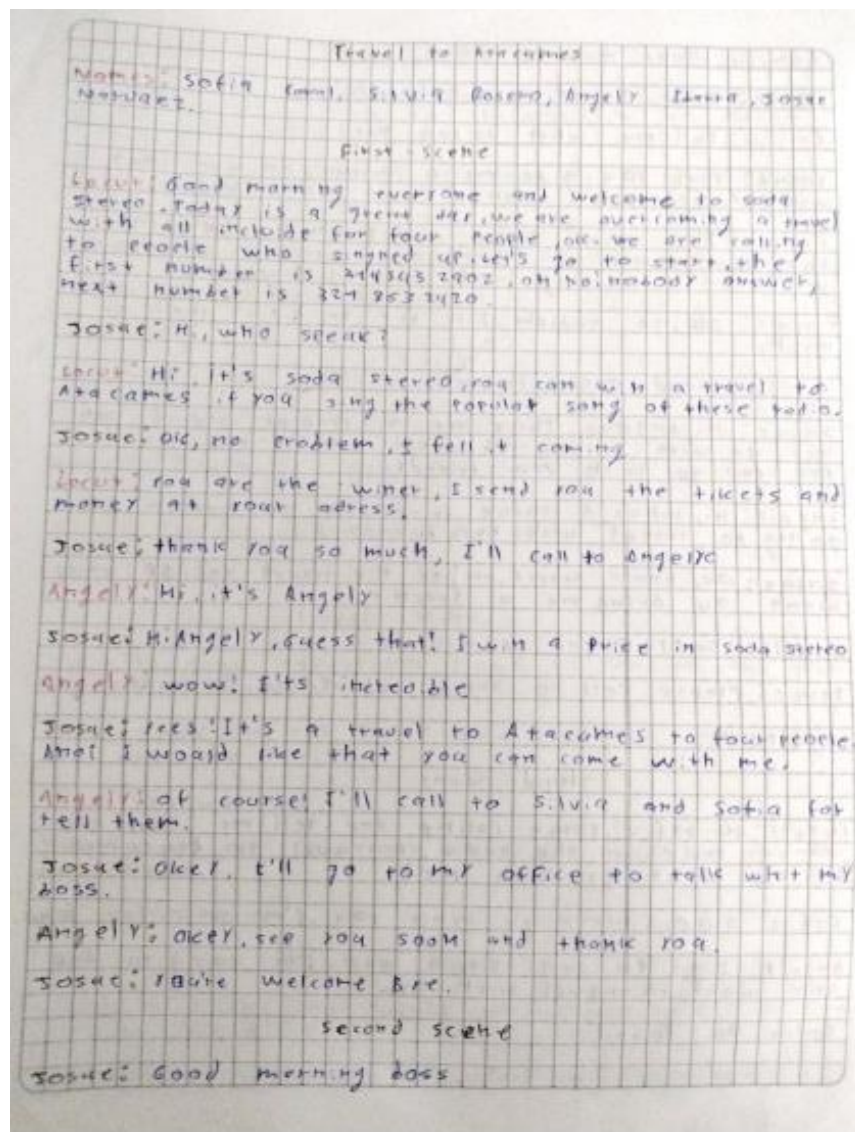 Travel to Atacames
Names: Sofia     , Silvia     , Angely     , Josue
Narvaez.
First scene
Locut: Good morning everyone and welcome to soda
stereo. Today is a great day, we are         a travel
with all include for four people, ok. we are calling
to people who singned up, let's go to start, the
first number is         , oh no! nobody answer,
next number is
Josue: Hi, who speak?
Locut: Hi, it's soda stereo, you can win a travel to
Atacames if you sing the popular song of these radio.
Josue: Ok, no problem, I fell it coming
Locut: you are the winer, I send you the tikets and
money at your adress.
Josue: thank you so much, I'll call to
Angely: Hi, it's Angely
Josue: Hi Angely, Guess that! I win a price in soda stereo
Angely: wow! I'ts
Josue: yees! It's a travel to Atacames to four people.
And I woard like that you can come with me.
Angely: of course! I'll call to Silvia and Sofia for
tell them.
Josue: Okey, I'll go to my office to talk wht my
boss.
Angely: okey, see you soon and thank you.
Josue: you're welcome Bye.
second scene
Josue: Good morning boss